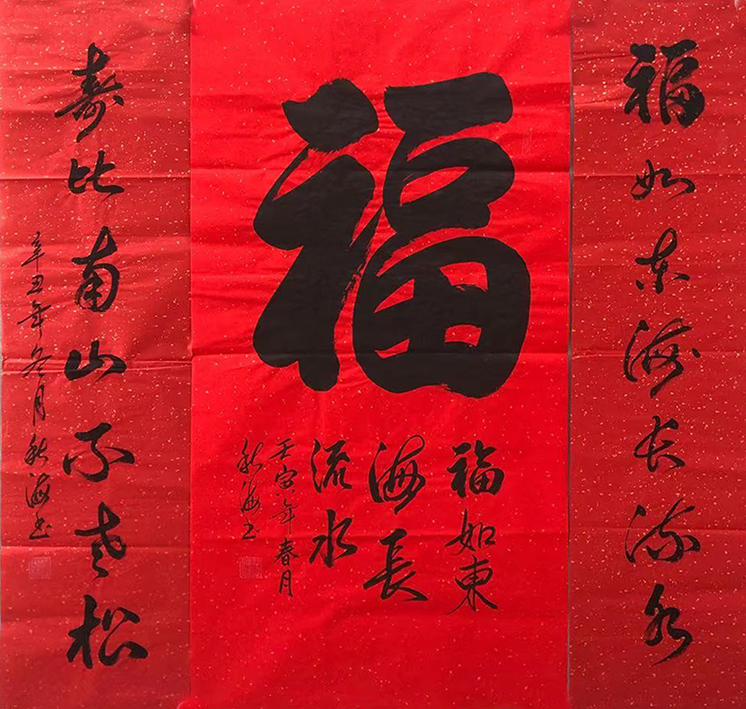 福如东海长流水
福
福如東
海長
流水
壬寅年春月
秋海书
寿比南山不老松
辛丑年冬月秋海书